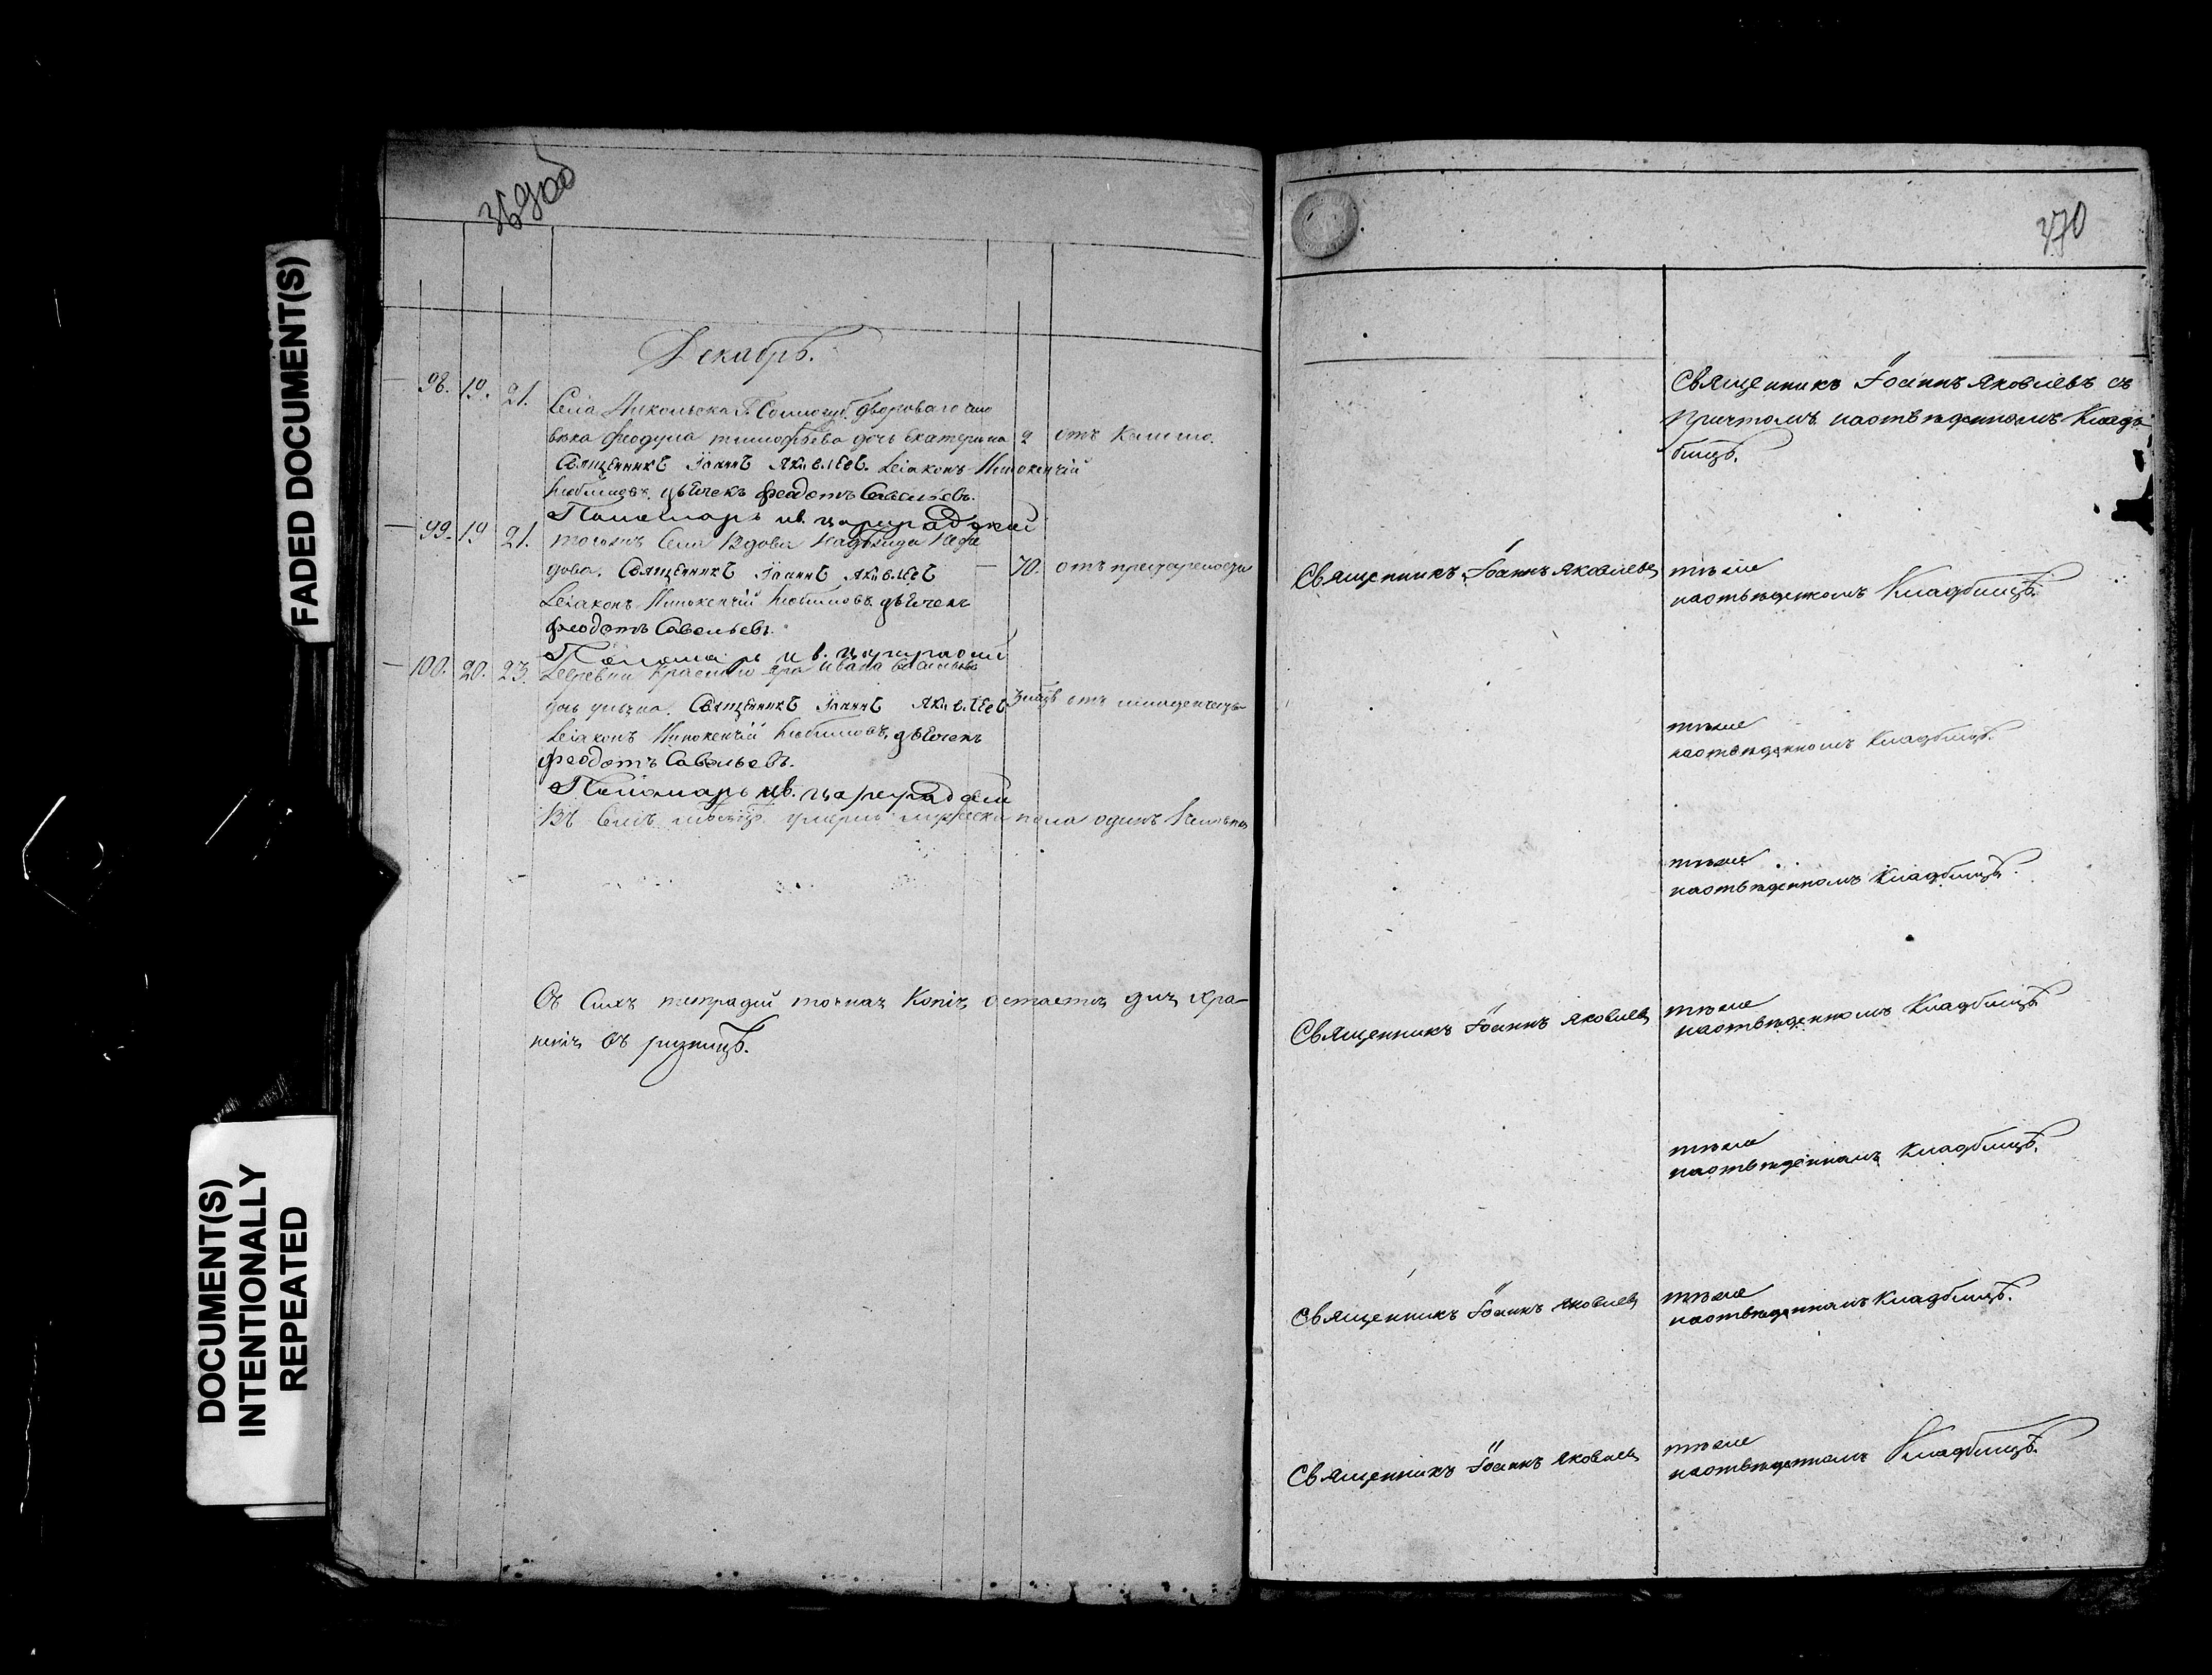 FADED DOCUMENT(S)
DOCUMENT(S)
INTENTIONALLY
REPEATED
369об
Декабрь.
— 98. 19. 21. Села Никольска Г. Сологуб. двороваго чело
вѣка Феодула тимофѣева дочь Екатерина 2 отъ кашлю.
Священникъ Іоаннъ Яковлевъ. Діаконъ Инокентій
Любимовъ. дьячекъ Феодотъ Савельевъ.
Пономарь ив. цареградскій
— 99. 19 21. тогожъ Села Вдова Надѣжда
дова. Священникъ Іоаннъ Яковлевъ — 70. отъ престарелости
Діаконъ Инокентій Любимовъ. дьячекъ
Феодотъ Савельевъ.
Пономарь ив. цареградскій
— 100. 20. 23. Деревни Краснаго яра Ивана Васильева
дочь ульяна. Священникъ Іоаннъ Яковлевъ 3 мцѣ отъ младенчества
Діаконъ Инокентій Любимовъ. дьячекъ
Феодотъ Савельевъ.
Пономарь ив. цареградскій
Въ Семъ мѣсяцѣ умерло мужеска пола одинъ
Съ Сихъ тетрадей точная Копія остается для хра-
ненія Въ ризницѣ.
370
Священникъ Іоаннъ Яковлевъ съ
причтомъ наотведенномъ Кладъ
бищѣ.
Священникъ Іоаннъ Яковлевъ тѣже
наотведенномъ Кладбищѣ.
тѣже
наотведенномъ Кладбищѣ.
тѣже
наотведенномъ Кладбищѣ.
Священникъ Іоаннъ Яковлевъ тѣже
наотведенномъ Кладбищѣ
тѣже
наотведенномъ Кладбищѣ.
Священникъ Іоаннъ Яковлевъ тѣже
наотведенномъ Кладбищѣ.
Священникъ Іоаннъ Яковлевъ тѣже
наотведенномъ Кладбищѣ.